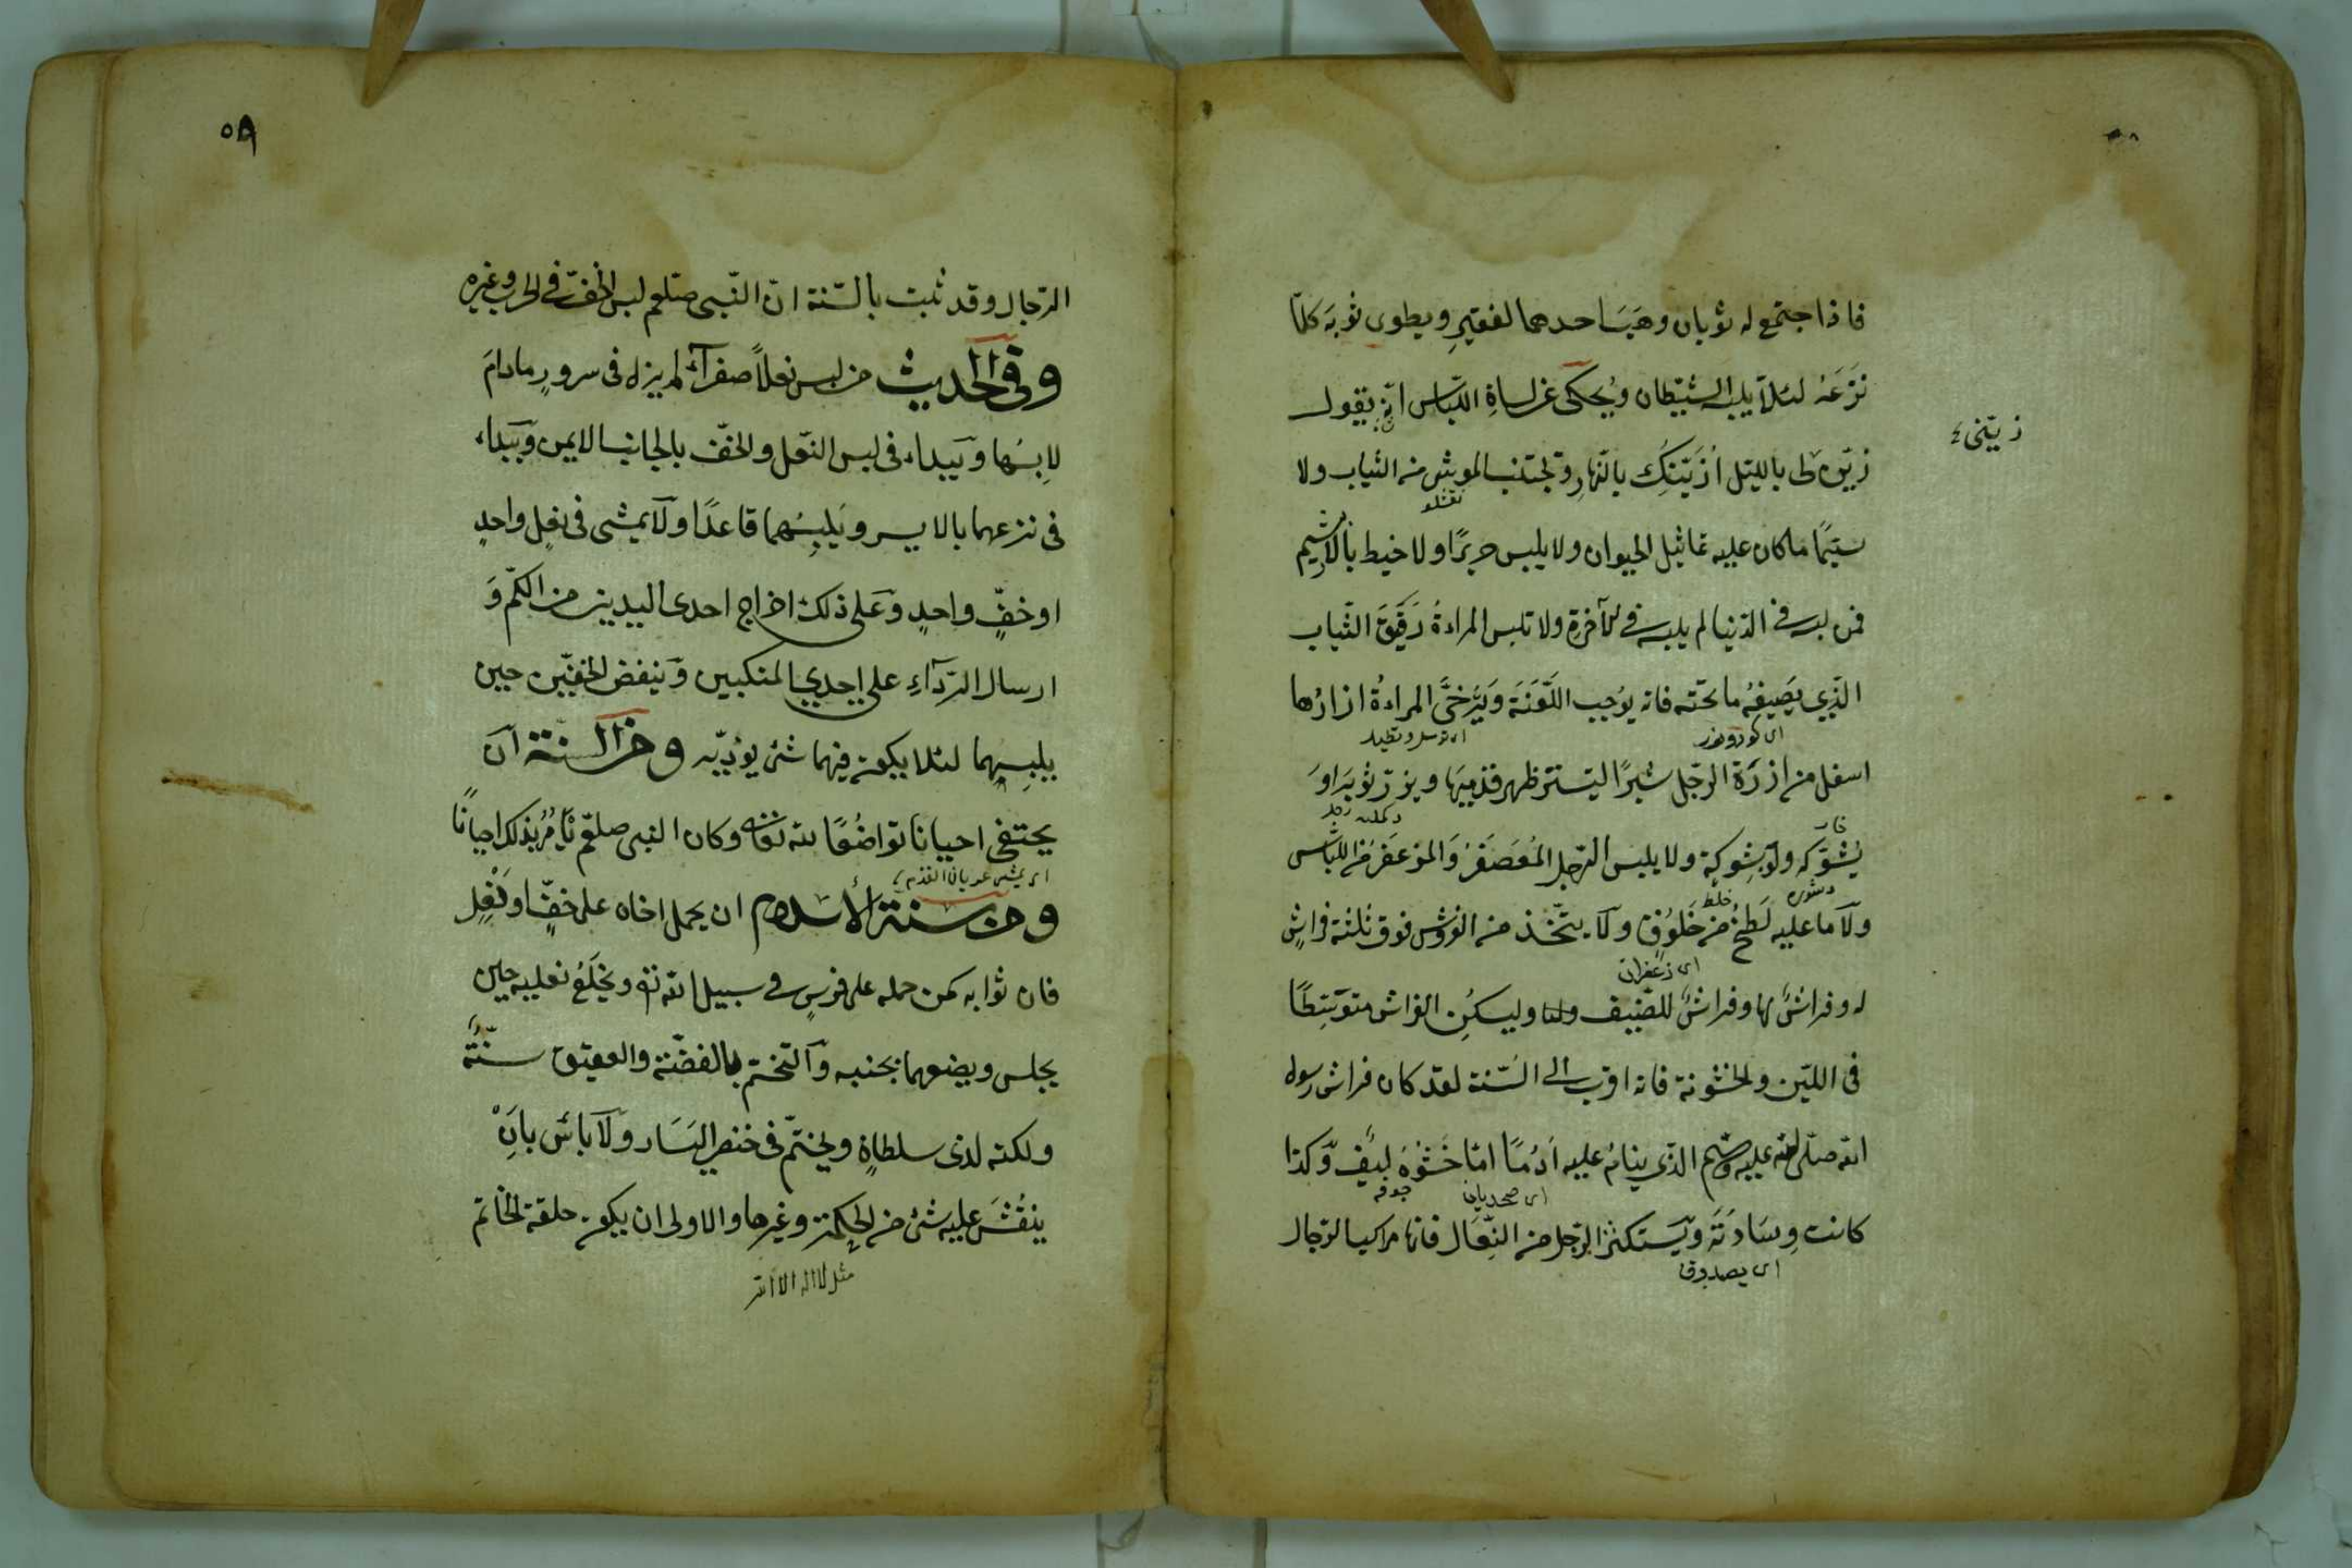 فاذا اجتمع له ثوبان وهب احدهما لفقيرٍ ويطوى ثوبه كلّما
نزعه لئلّا يلبسه الشيطان ويُحكى عن لسان اللباس انه يقول
زيّنى
زينونى بالليل اُزيّنك بالنهارِ وتجتنب الموشى من الثياب ولا
نقشلو
سيّما ما كان عليه تماثيل الحيوان ولا يلبس حريرًا ولا خيط بالابريشم
فمن لبسه فى الدّنيا لم يلبسه فى الآخرةِ ولا تلبس المراءةُ رقيق الثّياب
الّذى يصيفه ما تحته فانه يوجب اللّعنة ويرخى المراءةُ ازارها
اسفل من ازرة الرّجل شبرًا ليستتر ظهر قدميها ويزرّ ثوبه اوَ
يُشوّكه ولو بشوكة ولا يلبس الرّجل المُعصفرُ والمزعفرُ من اللّباس
خلط
ولا ما عليه لطخُ من خَلوُقٍ ولا يتّخذ من الفرش فوق ثلثة فراشٍ
اى زعفران
له وفراشٌ لها وفراشٌ للضّيف وليكن الفراش متوسّطًا
فى اللّين والخشونة فانه اقرب الى السّنة لقد كان فراش رسول
الله صلّى الله عليه وسلم الذى ينام عليه اَدُمًا امّا حَشْوُهُ ليفٌ وكذا
كانت وِسَادَتَه ويستكثر الرّجل من النّعال فانها مراكب الرّجال
٥٩
الرّجال وقد ثبت بالسّنة انّ النّبى صلعم لبس الخفّ فى الحر وغيره
وفى الحديث من لبس نعلاً صفرآءَ لم يزل فى سرورٍ مادامَ
لابِسُها ويَبداء فى لبس النّعل والخفّ بالجانب الايمن ويَبداء
فى نزعهما بالايسر ويَلبِسُهما قاعدًا ولا يمشى فى نعلٍ واحدٍ
او خفٍّ واحدٍ وعلى ذلك اخراج احدى اليدين من الكمّ وَ
ارسال الرّدآءِ على احدى المنكبين وَينفض الخفّين حين
يلبِسهما لئلا يكون فيهما شئ يؤذيه ومن السنة ان
يحتفى احيانا تواضُعًا لله تعالى وكان النبى صلعم يَأمُرُ بذلك احيانًا
اى يمشى عريان القدم
ومن سنة الأسلام ان يحمل اخاه على خفٍّ او نَعْلٍ
فان ثوابه كمن حمله على فرسٍ فى سبيل الله ويخلَعُ نعليه حين
يجلس ويضعهما بجنبه والتختم بالفضّة والعقيق سنّةٌ
ولكنه لذى سلطانٍ ويختّم فى خنصر اليَسَار ولا بأس بانْ
ينقُشَ عليه شئ من الحكمة وغيرها والاولى ان يكون حلقة الخاتم
مثل لا اله الا الله